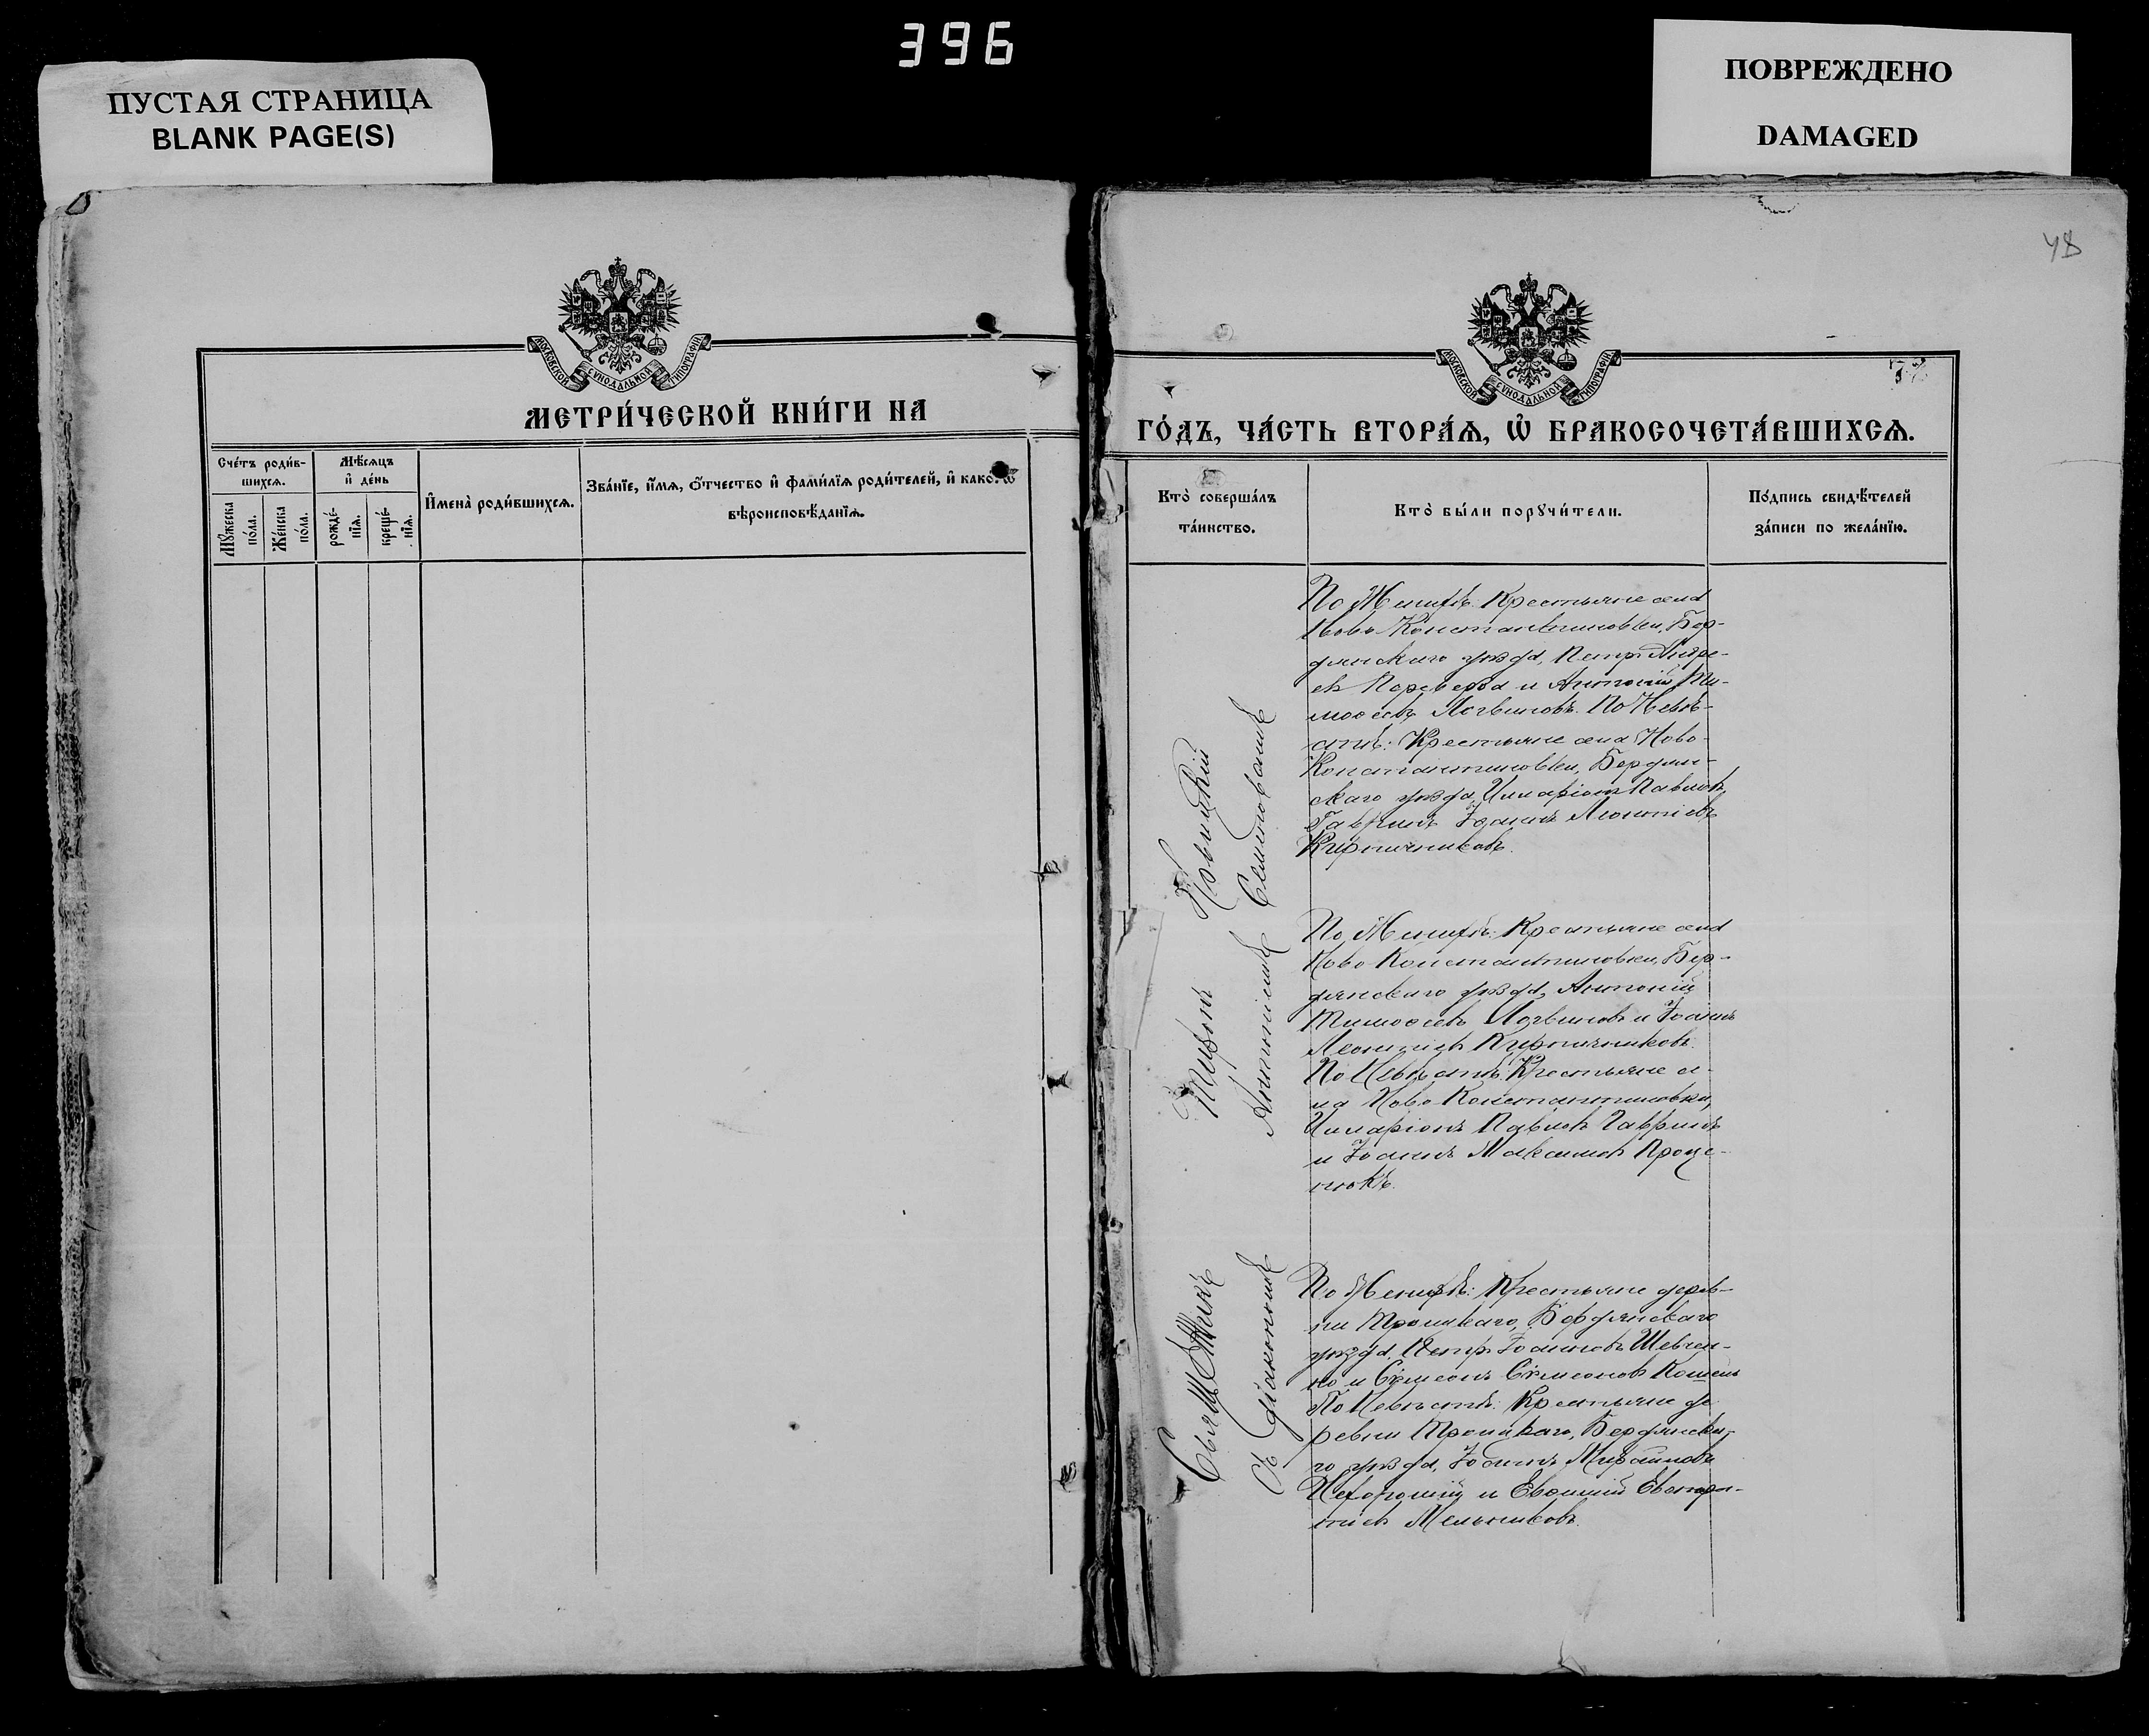 396
ПУСТАЯ СТРАНИЦА
BLANK PAGE(S)
ПОВРЕЖДЕНО
DAMAGED
48
МОСКОВСКОЙ СѴНОДАЛЬНОЙ ТИПОГРАФІИ
МЕТРИ́ЧЕСКОЙ КНИ́ГИ НА
Сче́тъ роди́в-
шихсѧ.
Мѣ́сѧцъ
и҆ де́нь
И҆мена̀ роди́вшихсѧ.
Зва́нїе, и҆́мѧ, ѻ҆́тчество и҆ фами́лїѧ роди́телей, и҆ како́гѡ
вѣроисповѣ́данїѧ.
Мꙋ́жеска
по́ла.
Же́нска
по́ла.
рожде́-
нїѧ.
креще́-
нїѧ.
МОСКОВСКОЙ СѴНОДАЛЬНОЙ ТИПОГРАФІИ
ГО́ДЪ, ЧА́СТЬ ВТОРА́Ѧ, Ѡ҆ БРАКОСОЧЕТА́ВШИХСѦ.
Кто̀ соверша́лъ
та́инство.
Кто̀ бы́ли порꙋчи́тели.
По́дпись свидѣ́телей
за́писи по жела́нїю.
По Женихѣ: Крестьяне села
Ново Константиновки, Бер-
дянскаго уѣзда, Петръ Андре-
евъ Переверза и Антоній Ти-
моѳеевъ Логвиновъ. По Невѣ-
стѣ: Крестьяне села Ново-
Константиновки, Бердян-
скаго уѣзда, Иларіонъ Павловъ
Гавришъ Іоаннъ Леонтіевъ
Кирпичниковъ.
По Женихѣ: Крестьяне села
Ново Константиновки, Бер-
дянскаго уѣзда, Антоній
Тимоѳеевъ Логвиновъ и Іоаннъ
Леонтіевъ Кирпичниковъ.
По Невѣстѣ: Крестьяне се-
ла Ново Константиновки,
Иларіонъ Павловъ Гавришъ
и Іоаннъ Максимовъ Проце-
нокъ.
По Женихѣ: Крестьяне дерев-
ни Троицкаго, Бердянскаго
уѣзда, Петръ Іоанновъ Шевчен-
ко и Сѵмеонъ Сѵмеоновъ
По Невѣстѣ: Крестьяне де
ревни Троицкаго, Бердянска-
го уѣзда, Іоаннъ Михаиловъ
и Евѳимій
Мельниковъ.
Священникъ
Тихонъ
Новицкій
Съ діакономъ